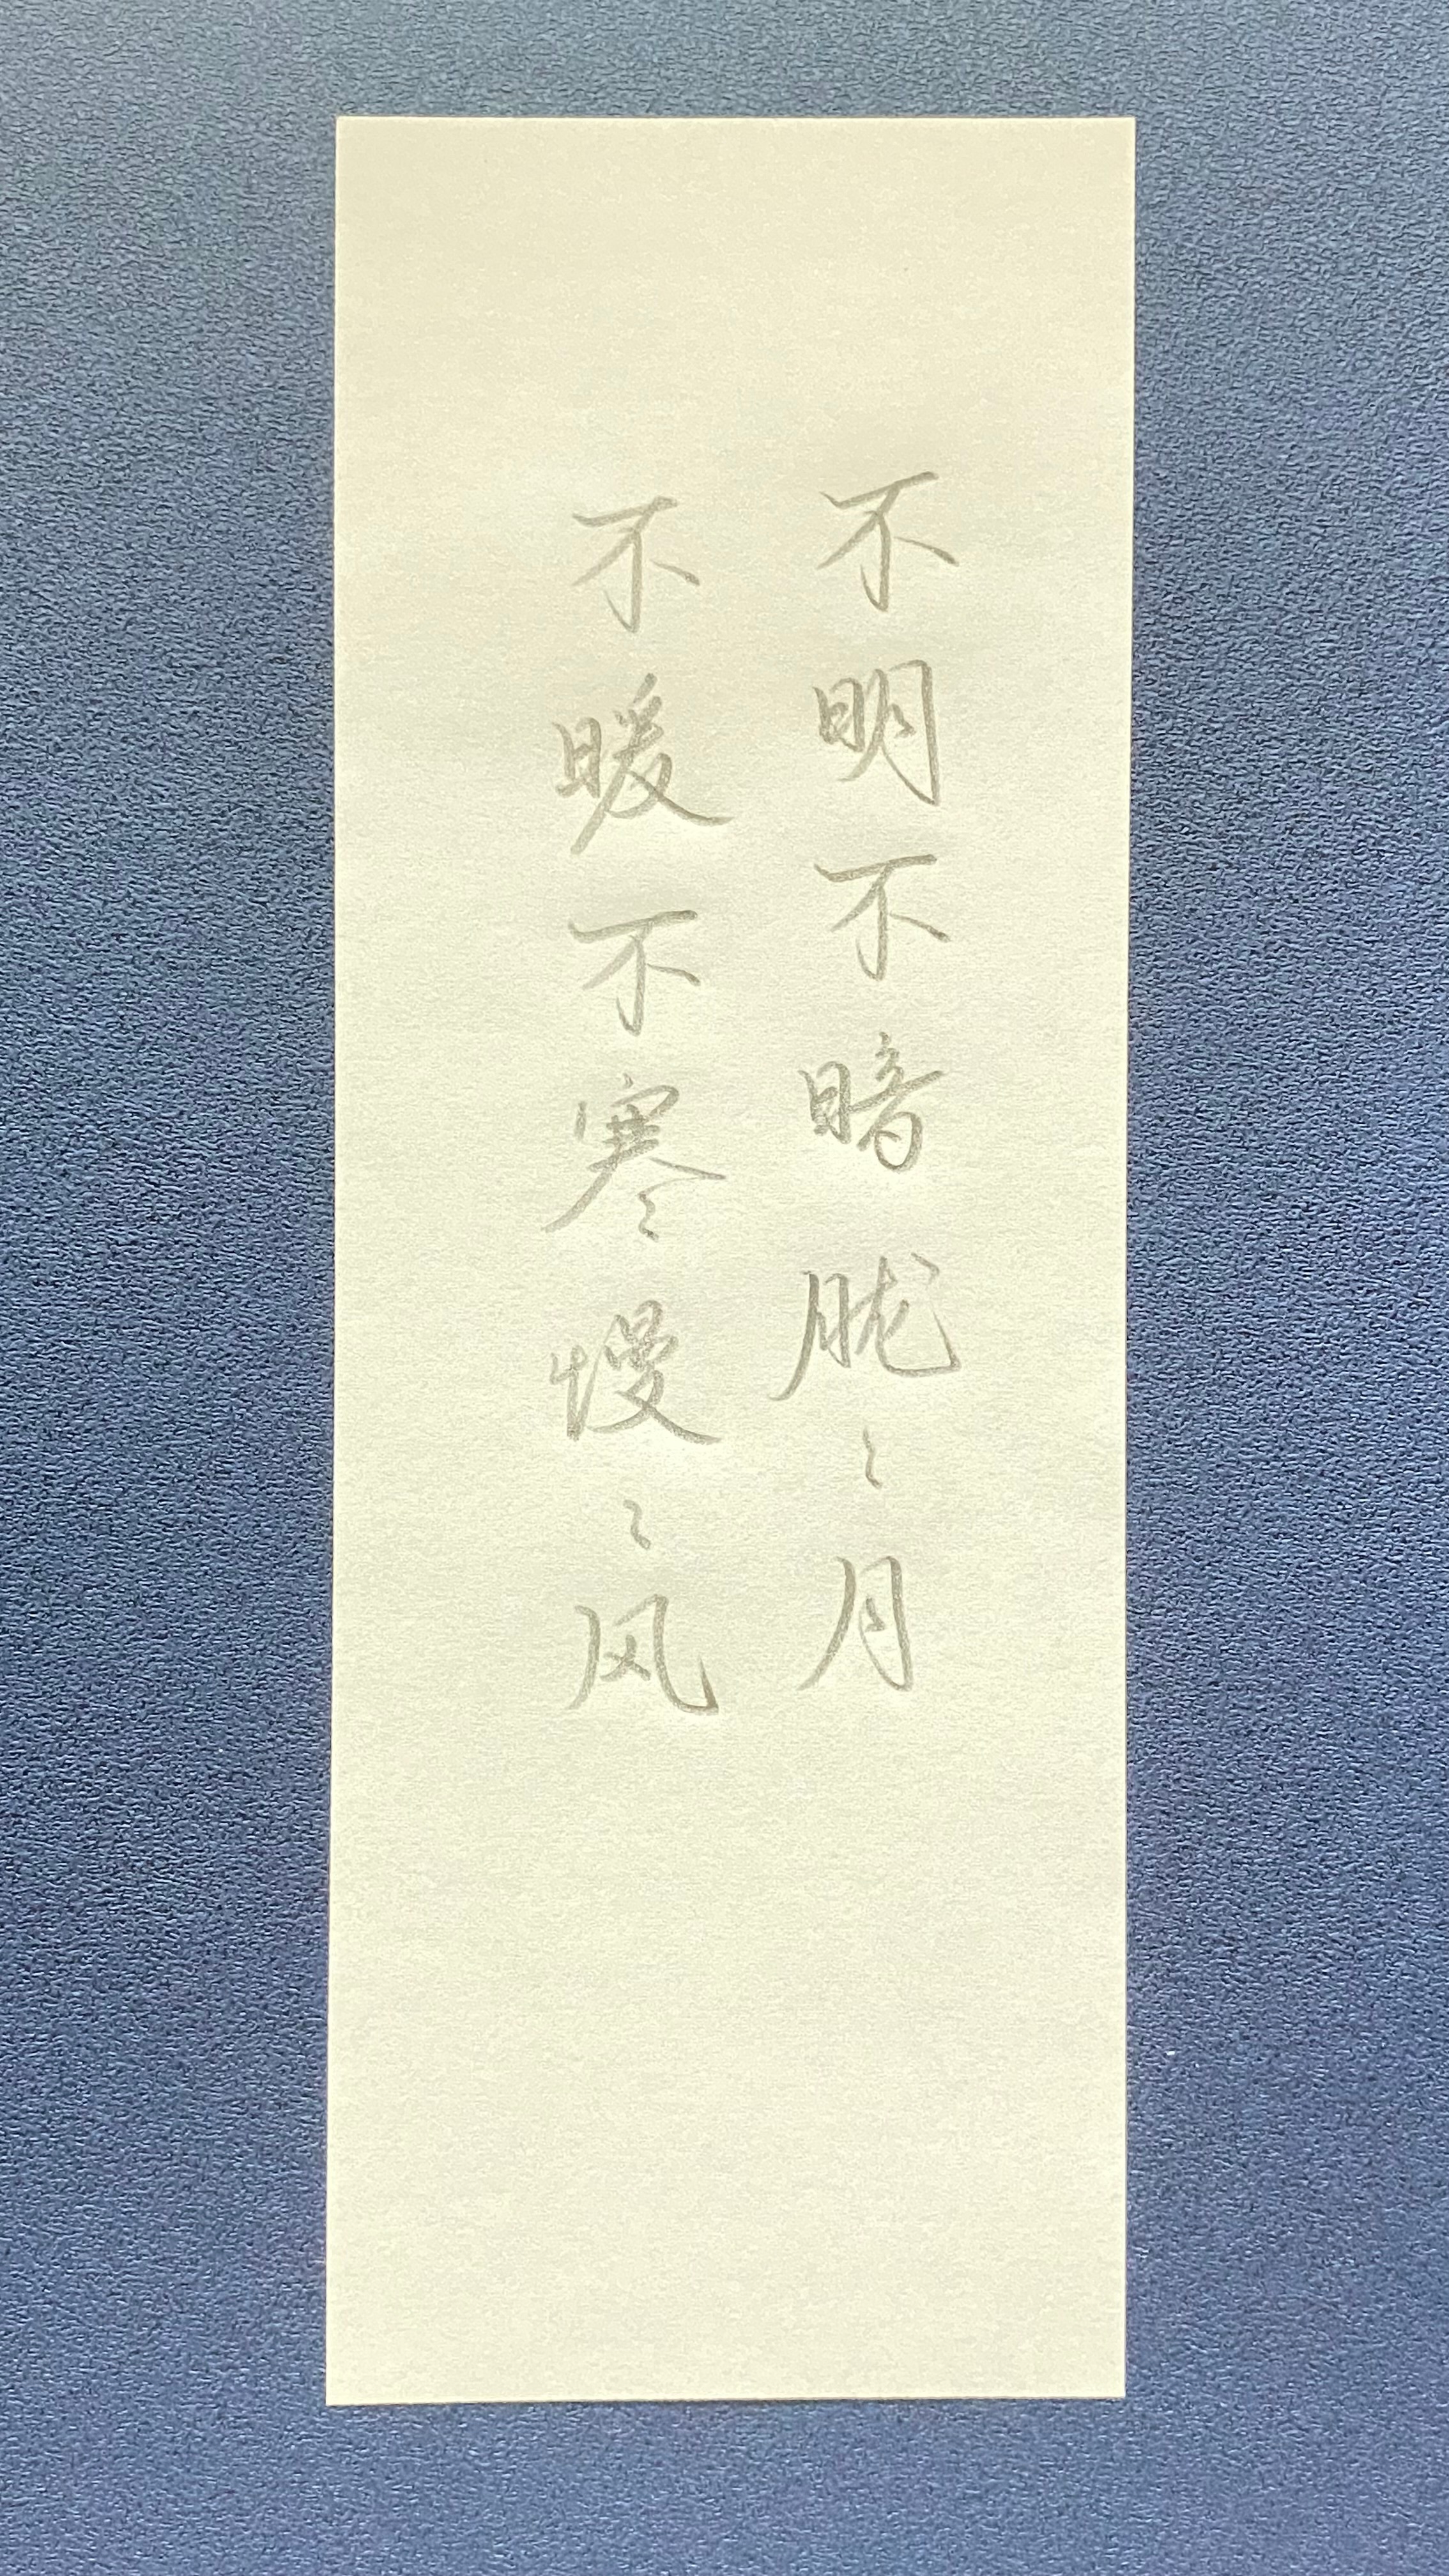 不明不暗胧〻月
不暖不寒慢〻风